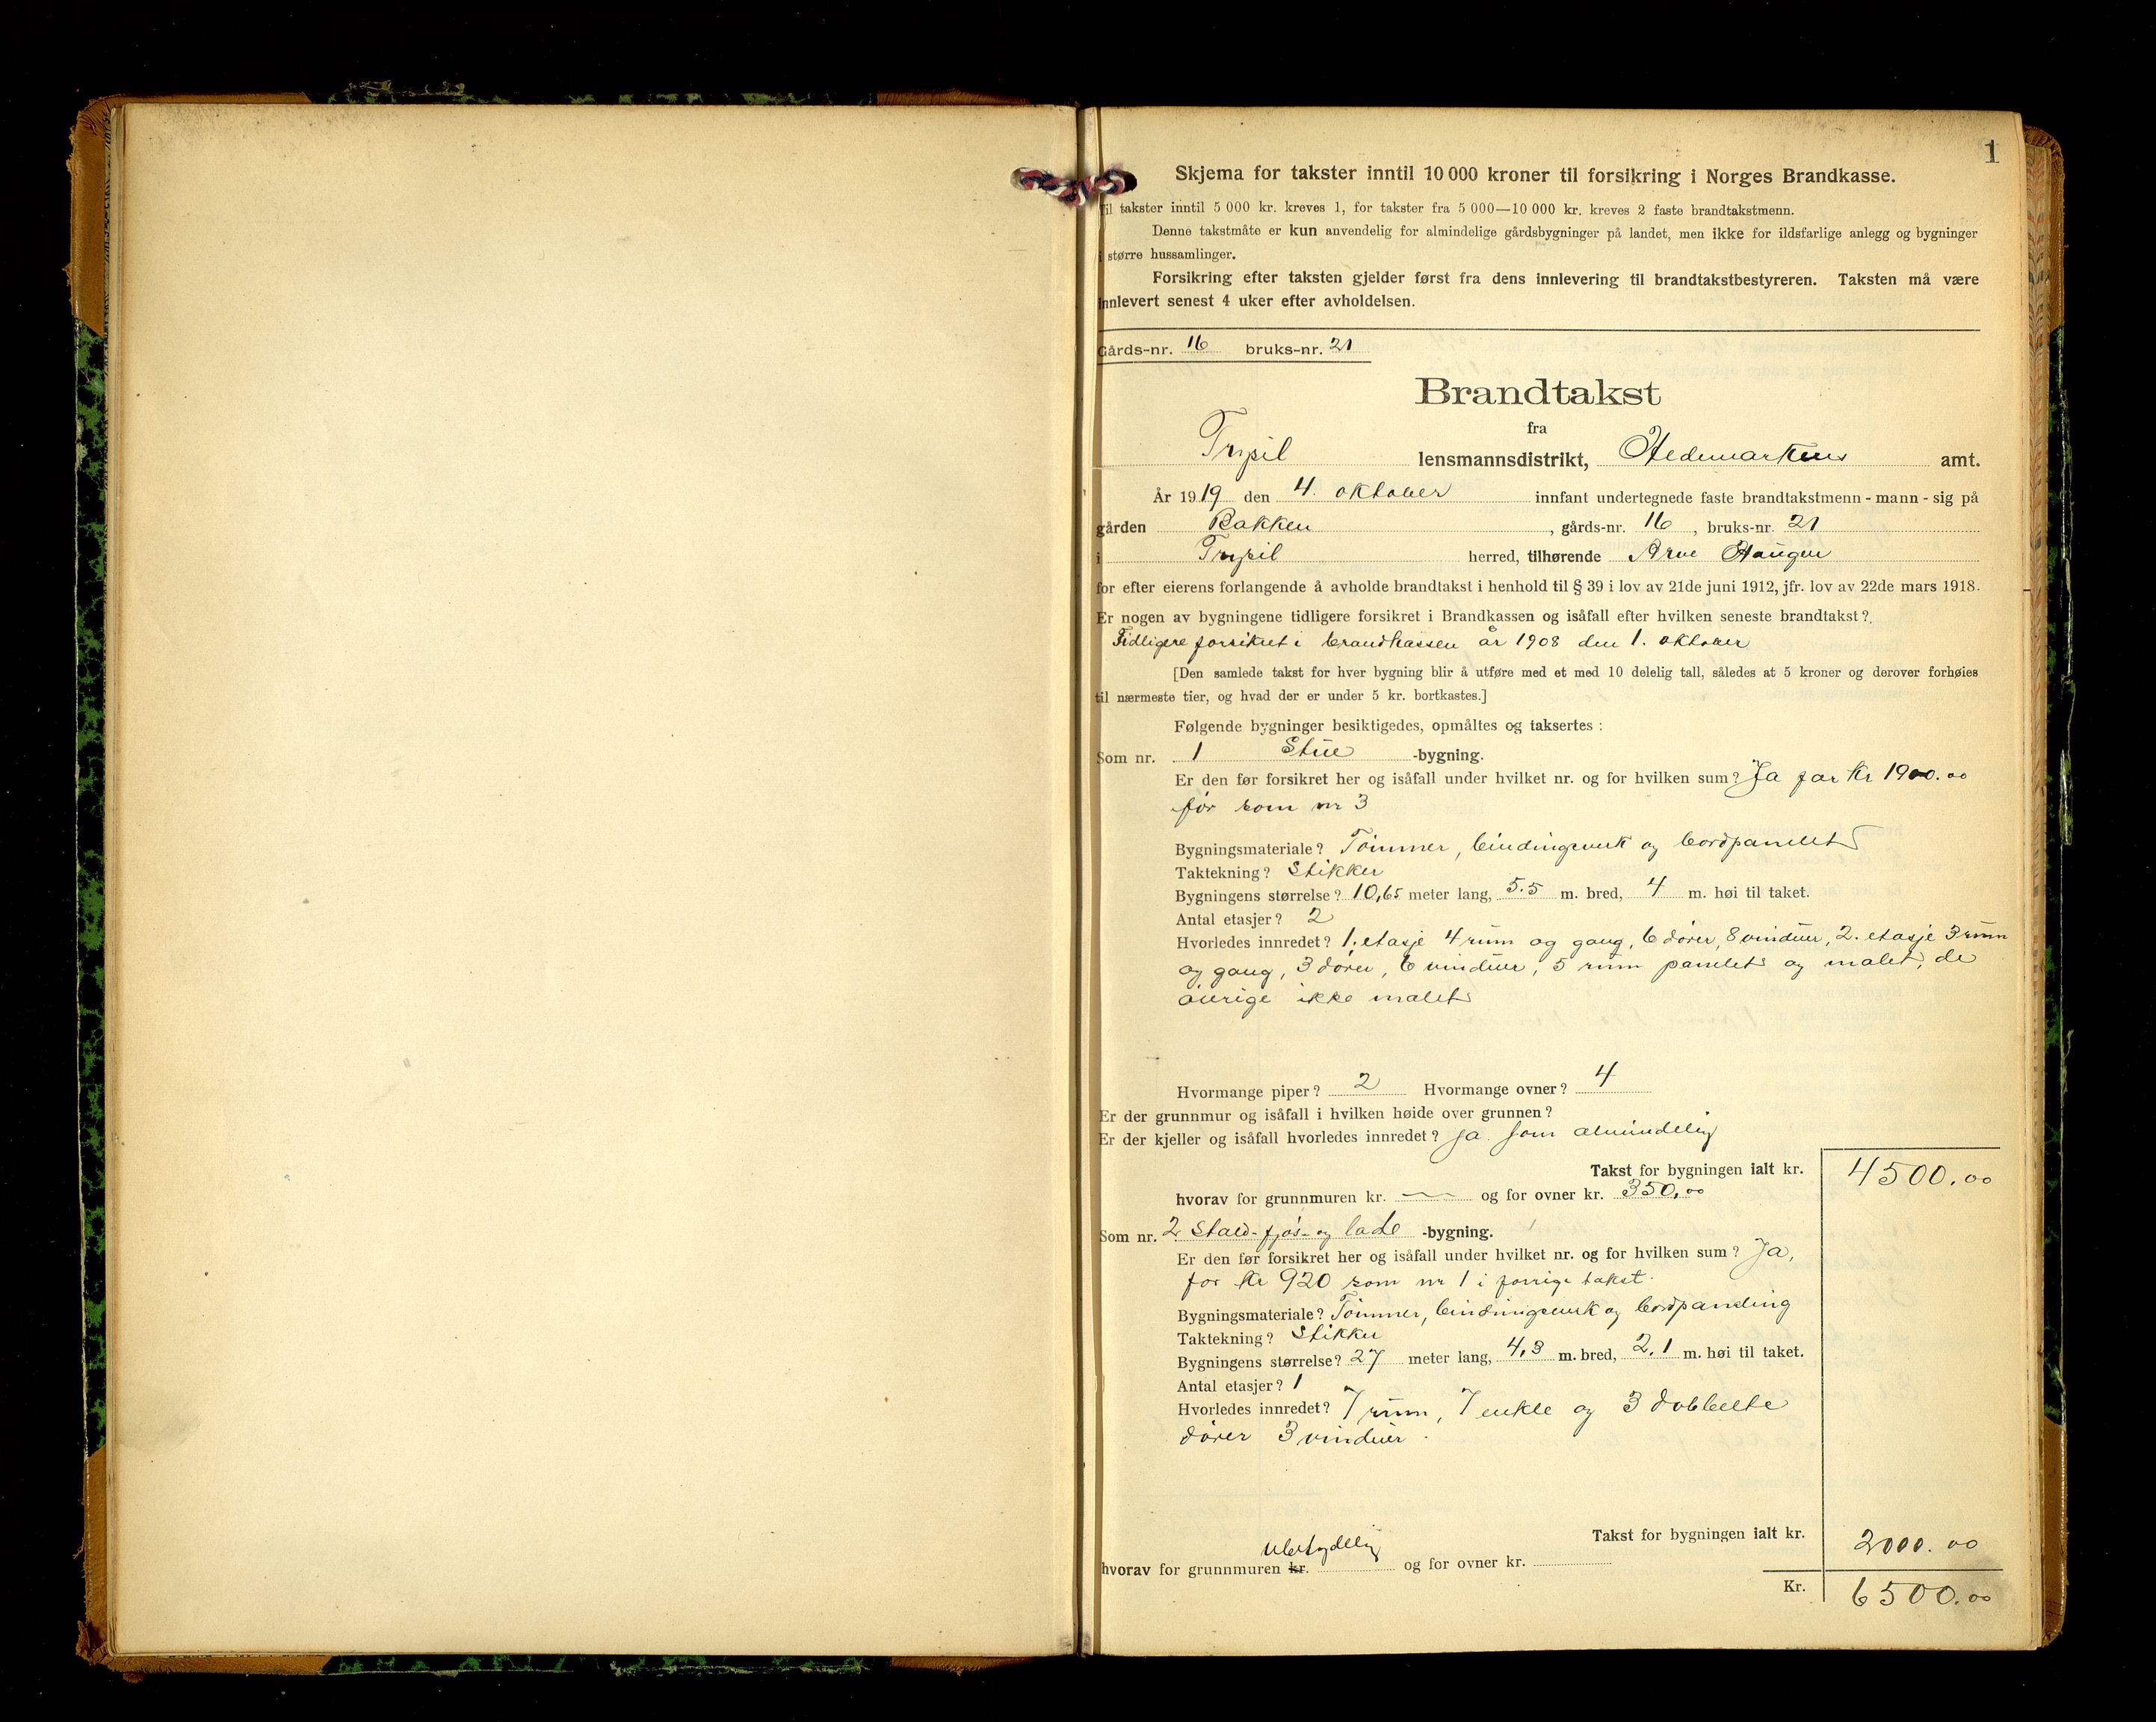 1
Skjema for takster inntil 10 000 kroner til forsikring i Norges Brandkasse.
Til takster inntil 5 000 kr. kreves 1, for takster fra 5 000—10 000 kr. kreves 2 faste brandtakstmenn.
Denne takstmåte er kun anvendelig for almindelige gårdsbygninger på landet, men ikke for ildsfarlige anlegg og bygninger
i større hussamlinger.
Forsikring efter taksten gjelder først fra dens innlevering til brandtakstbestyreren. Taksten må være
innlevert senest 4 uker efter avholdelsen.
Gårds-nr. 16 bruks-nr. 21
Brandtakst
fra
Trysil lensmannsdistrikt, Hedemarkens amt.
År 1919 den 4. oktober innfant undertegnede faste brandtakstmenn - mann - sig på
gården Bakken, gårds-nr. 16, bruks-nr. 21
i Trysil herred, tilhørende Arne Haugen
for efter eierens forlangende å avholde brandtakst i henhold til § 39 i lov av 21de juni 1912, jfr. lov av 22de mars 1918.
Er nogen av bygningene tidligere forsikret i Brandkassen og isåfall efter hvilken seneste brandtakst?
Tidligere forsikret i brandkassen år 1908 den 1. oktober
[Den samlede takst for hver bygning blir å utføre med et med 10 delelig tall, således at 5 kroner og derover forhøies
til nærmeste tier, og hvad der er under 5 kr. bortkastes.]
Følgende bygninger besiktigedes, opmåltes og taksertes :
Som nr. 1 Stue -bygning.
Er den før forsikret her og isåfall under hvilket nr. og for hvilken sum? Ja for kr 1900.00
før som nr 3
Bygningsmateriale? Tömmer, bindingsverk og bordpanelet
Taktekning? Stikker
Bygningens størrelse? 10,65 meter lang, 5.5 m. bred, 4 m. høi til taket.
Antal etasjer? 2
Hvorledes innredet? 1. etasje 4 rum og gang, 6 dörer, 8 vinduer, 2. etasje 3 rum
og gang, 3 dörer, 6 vinduer, 5 rum panelet og malet, de
övrige ikke malet
Hvormange piper? 2 Hvormange ovner? 4
Er der grunnmur og isåfall i hvilken høide over grunnen?
Er der kjeller og isåfall hvorledes innredet? Ja som almindelig
Takst for bygningen ialt kr. 4500.00
hvorav for grunnmuren kr. — og for ovner kr. 350,00
Som nr. 2 Stald- fjös- og lade -bygning.
Er den før forsikret her og isåfall under hvilket nr. og for hvilken sum? Ja,
for kr 920 som nr 1 i forrige takst.
Bygningsmateriale? Tömmer, bindingsverk og bordpaneling
Taktekning? Stikker
Bygningens størrelse? 27 meter lang, 4,3 m. bred, 2,1 m. høi til taket.
Antal etasjer? 1
Hvorledes innredet? 7 rum, 7 enkle og 3 dobbelte
dörer 3 vinduer.
Takst for bygningen ialt kr. 2000.00
hvorav for grunnmuren kr. ubetydelig og for ovner kr.
Kr. 6500.00